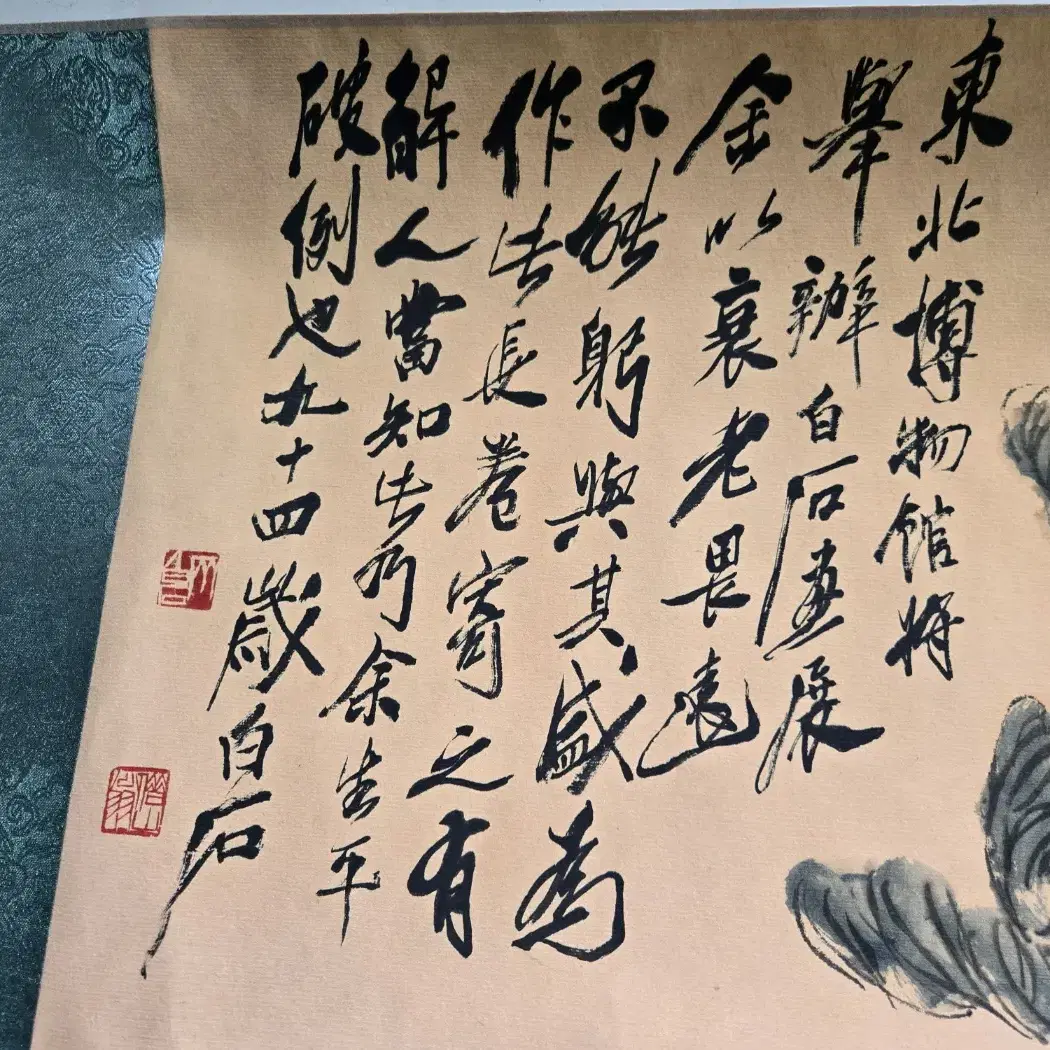 東北博物館將
舉辦白石畫展
余以衰老畏遠
不能躬與其盛為
作此長卷寄之有
解人當知此乃余生平
破例也九十四歲白石